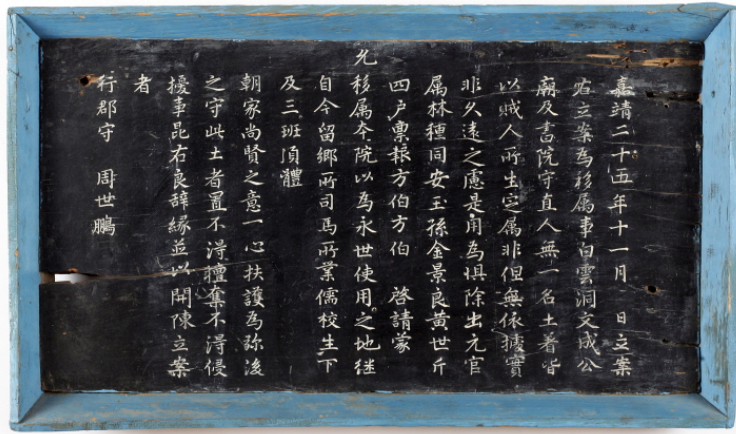 嘉靖二十五年十一月 日立案
右立案爲移属事白雲洞文成公
廟及書院守直人無一名土着皆
以賊人所生定属非但無依據實
非久遠之慮是用爲惧除出元官
属林穟同安玉孫金景良黄世斤
四户禀報方伯方伯 啓請蒙
允移属本院以爲永世使用之地继
自今留鄉所司馬所業儒校生下
及三班湏體
朝家尚賢之意一心扶護爲弥後
之守此土者置不淂擅奪不淂侵
擾事昆右良辞縁並以開陳立案
者
行郡守 周世鵬